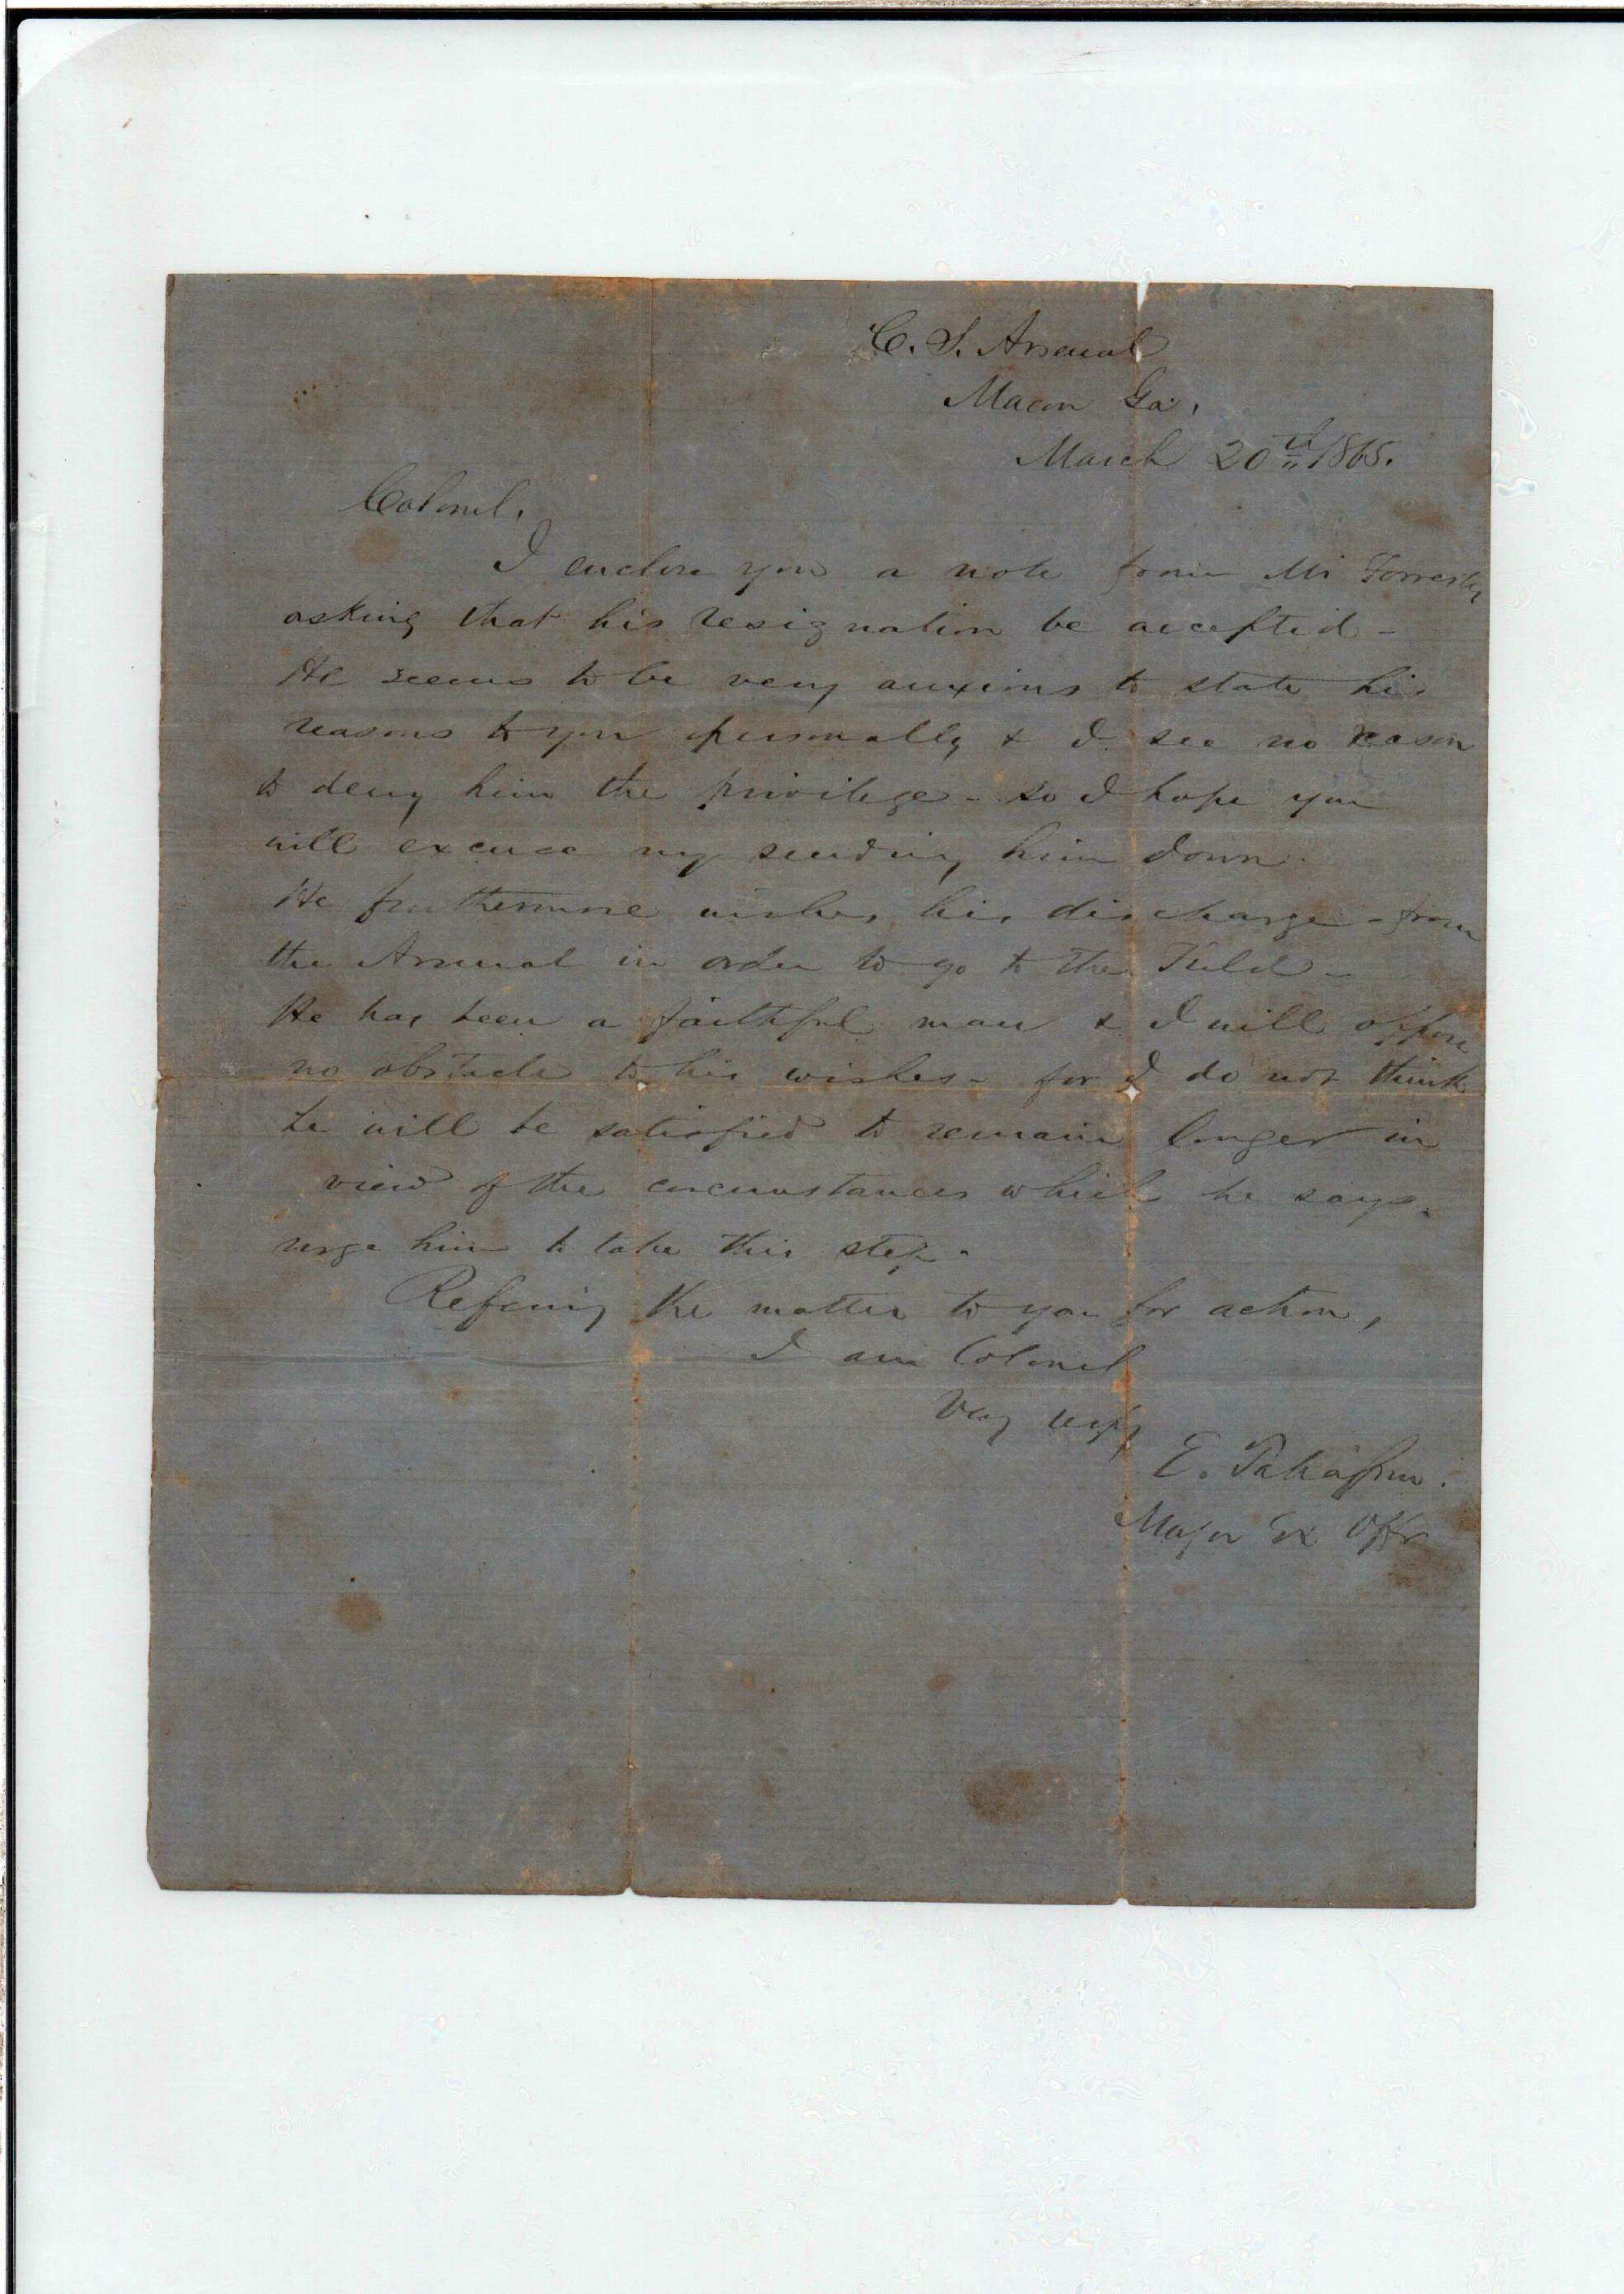 C. S. Arsenal
Macon Ga.
March 20th 1865.
Colonel.
I enclose you a note from Mr Forrester
asking that his resignation be accepted -
He seems to be very anxious to state his
reasons to you personally & I see no reason
to deny him the privilege - so I hope you
will excuse my sending him down.
He furthermore wishes his discharge - from
the Arsenal in order to go to the Field -
He has been a faithful man & I will oppose
no obstacle to his wishes - for I do not think
he will be satisfied to remain longer in
view of the circumstances which he says
urge him to take this step -
Referring the matter to you for action,
I am Colonel
Very resply
E. Taliaferro.
Major Ex Offr